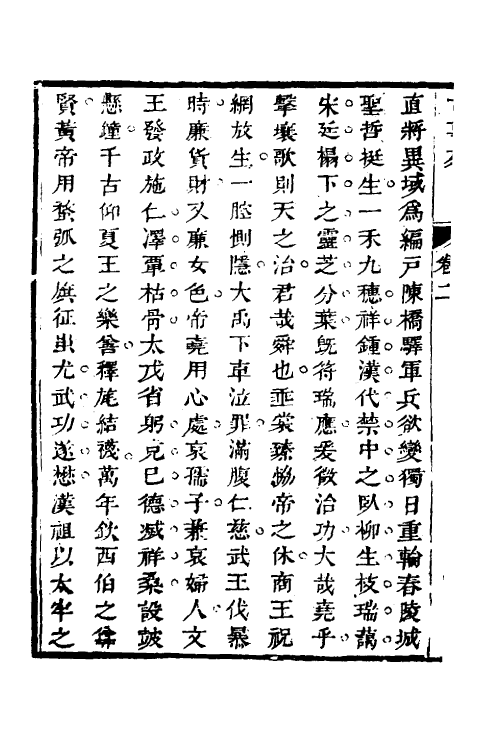 卷二
直將異域爲編戸陳橋驛軍兵欲變獨日重輪舂陵城
聖哲挺生一禾九穗祥鍾漢代禁中之臥柳生枝瑞藹
宋廷榻下之靈芝分葉既符瑞應爰徵治功大哉堯乎
擊壤歌則天之治君哉舜也垂裳臻恊帝之休商王祝
網放生一腔惻隱大禹下車泣罪滿腹仁慈武王伐暴
時廉貨財又廉女色帝堯用心處哀孺子兼哀婦人文
王發政施仁澤覃枯骨太戊省躬克已德滅祥桑設鼗
懸鐘千古仰夏王之樂善釋旄結襪萬年欽西伯之
賢黃帝用蝥弧之旗征蚩尤武功遂懋漢祖以太牢之